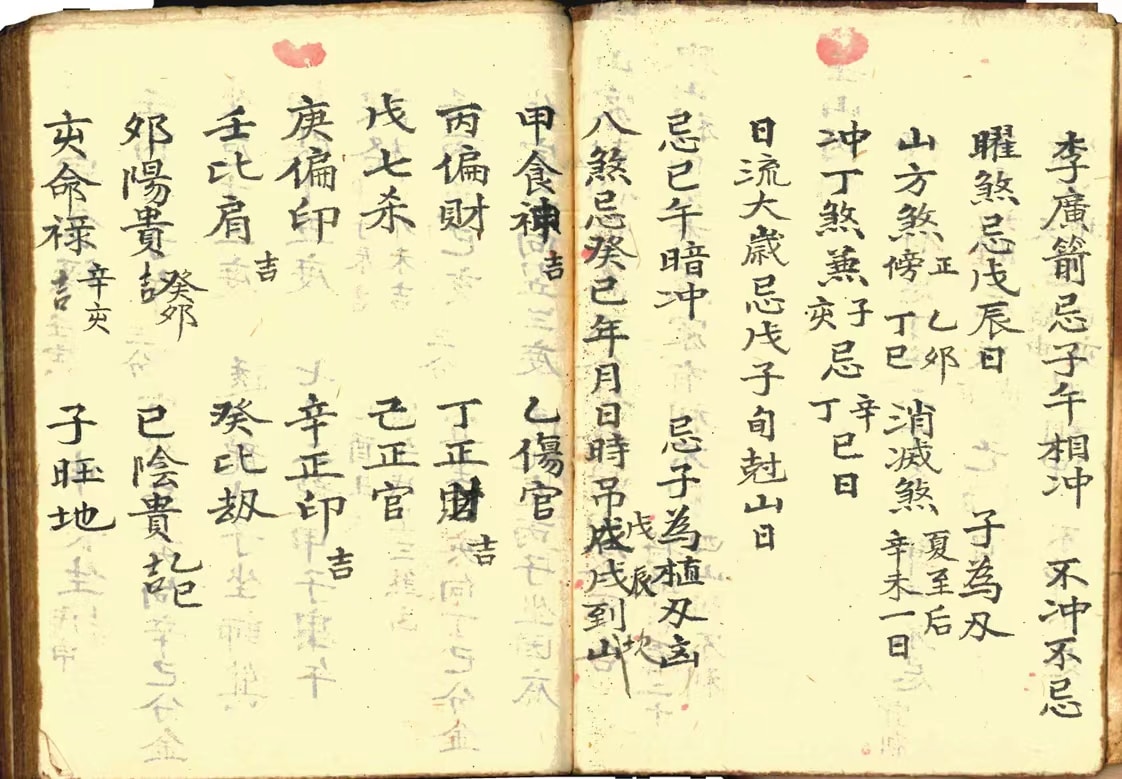 李廣箭忌子午相冲　不冲不忌
曜煞忌戊辰日　子為刃
山方煞傍正乙夘丁巳　消滅煞夏至后辛未一日
冲丁煞兼子亥忌辛丁巳日
日流大歲忌戊子旬尅山日
忌巳午暗冲　忌子為植刃凶
八煞忌癸巳年月日時吊戊戌到山戊辰坎
甲食神吉　乙傷官
丙偏財　丁正財吉
戊七杀　己正官
庚偏印　辛正印吉
壬比肩吉　癸比刼
夘陽貴吉癸夘　巳陰貴吉乙巳
亥命祿吉辛亥　子旺地